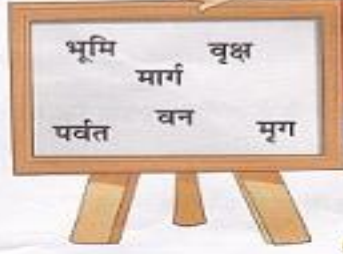 भूमि वृक्ष
मार्ग
वन
पर्वत मृग